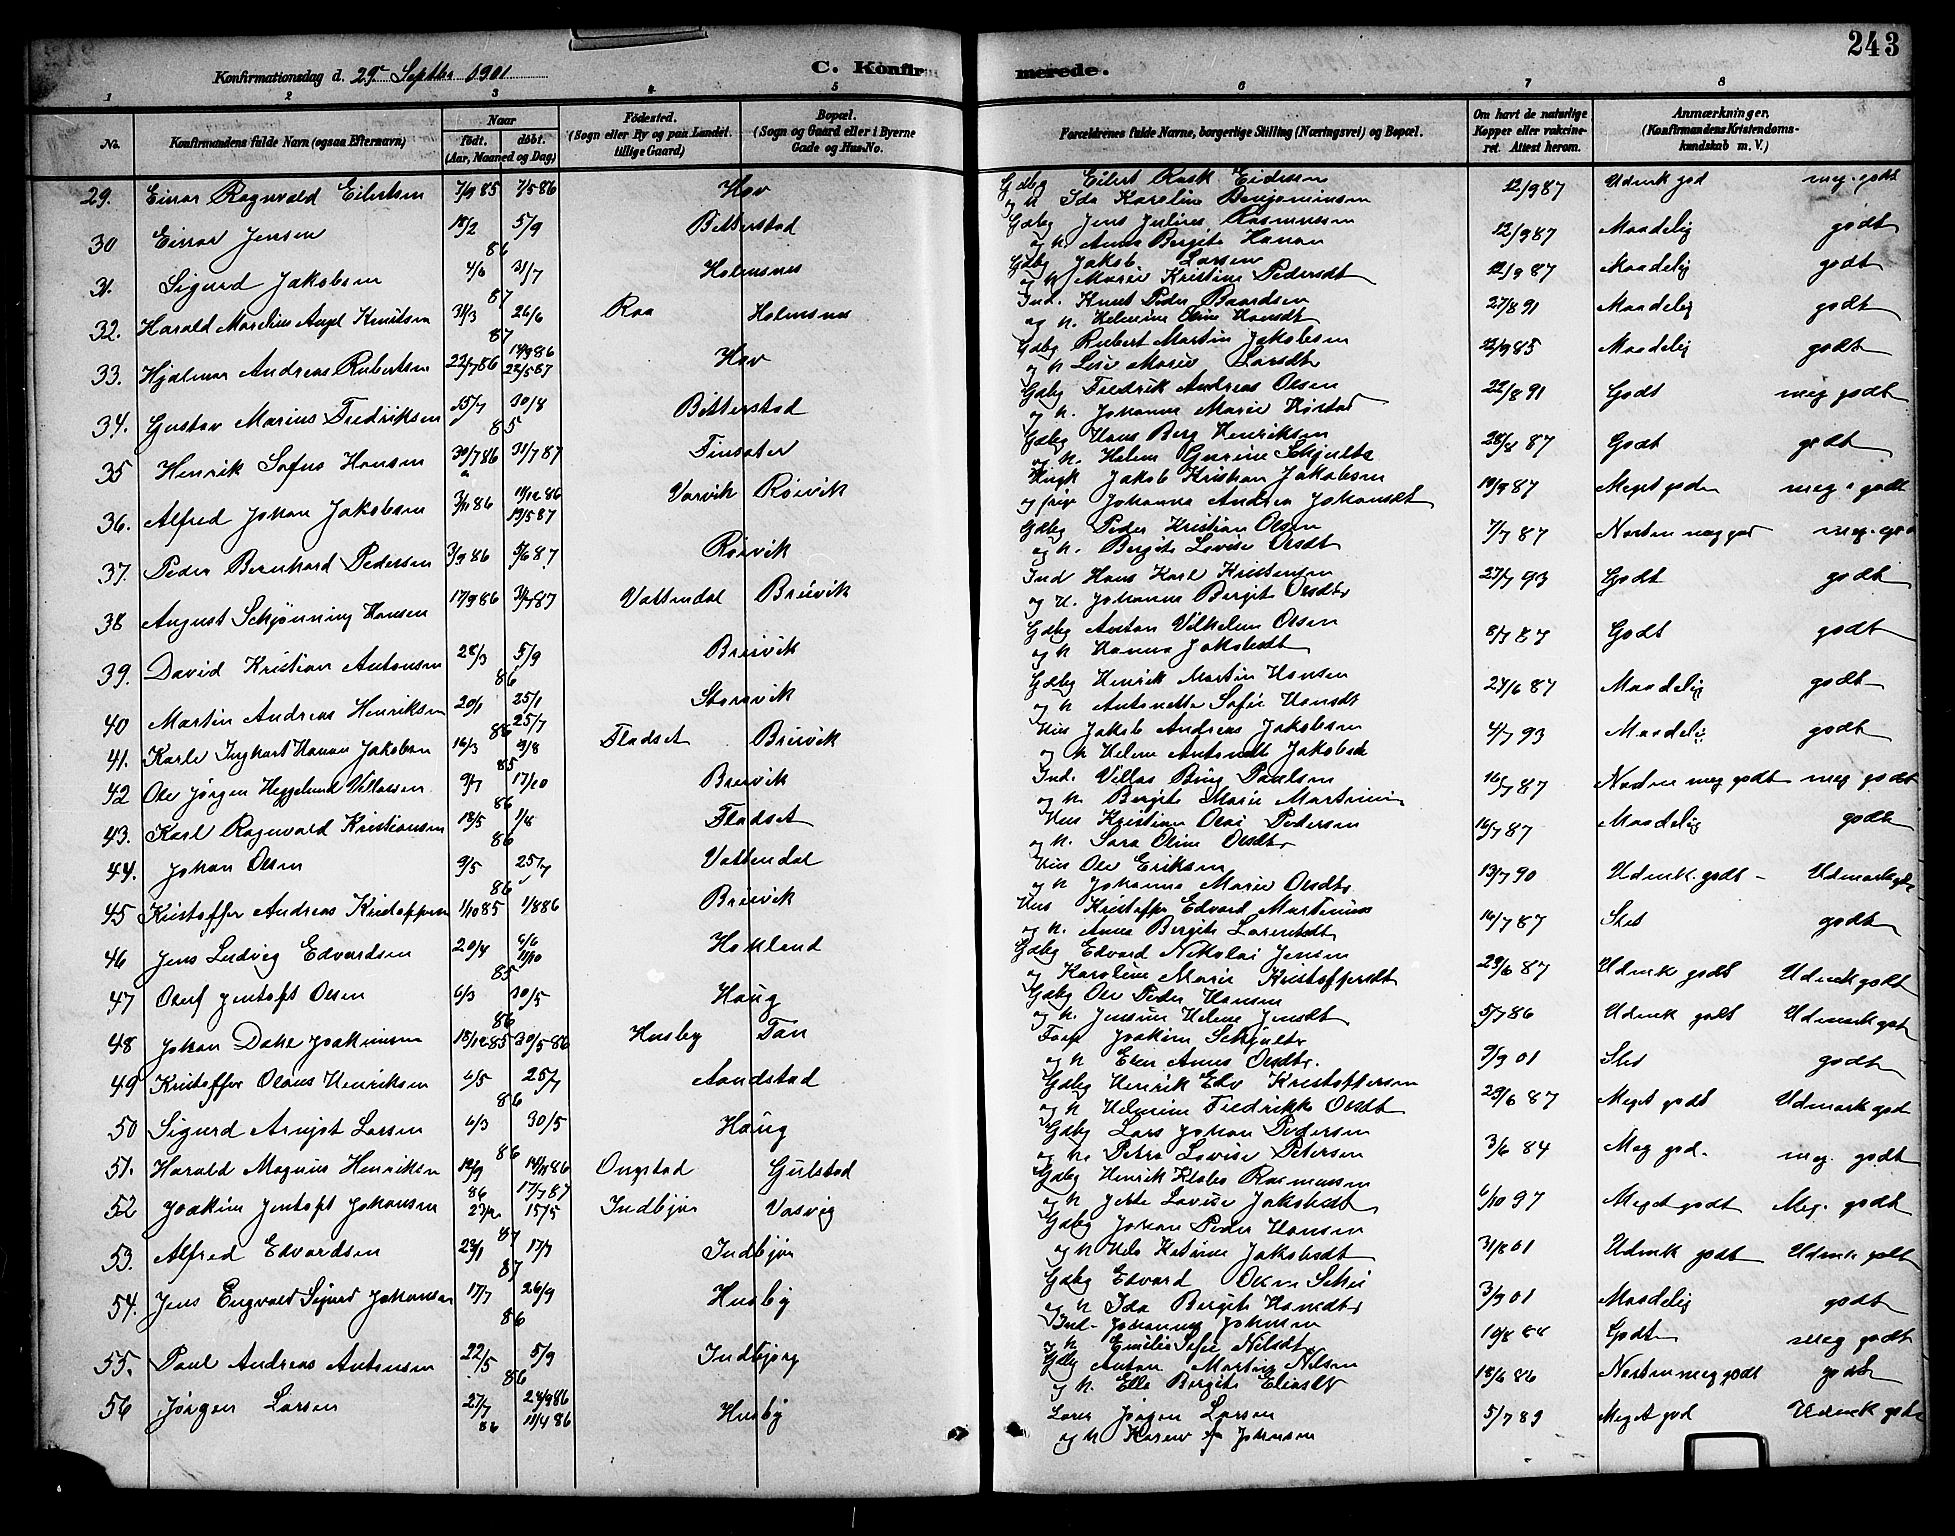 243
Konfirmationsdag d. 29de Septbr 1901
C. Konfirmerede.
1 2 3 4 5 6 7 8
No.
Konfirmandens fulde Navn (ogsaa Efternavn)
Naar
født. døbt.
(Aar, Maaned og Dag)
Fødested.
(Sogn eller By og paa Landet tillige Gaard)
Bopæl.
(Sogn og Gaard eller i Byerne Gade og Hus-No.
Forældrenes fulde Navne, borgerlige Stilling (Næringsvei) og Bopæl.
Om havt de naturlige Kopper eller vakcineret. Attest herom.
Anmærkninger.
(Konfirmandens Kristendomskundskab m. V.)
29. Einar Ragnvald Eilertsen 7/9 85 7/5 86 Hov Gdbg Eilert Rask Edersen 12/9 87 Udmk god meg. godt
og h Ida Karoline Benjaminsen
30 Einar Jensen 18/2 5/9 86 Bitterstad Gdbg Jens Julius Rasmussen 12/9 87 Maadelig godt
og h. Anna Bergite Hanan
31. Sigurd Jakobsen 4/6 31/7 87 Holmsnes Gdbg Jakob Larsen 12/9 87 Maadelig godt
og h Marie Kristine Pedersdt
32. Harald Marelius Angel Knutsen 31/3 26/6 87 Raa Holmsnes Ind. Knut Peder Baardsen 27/8 91 Maadelig godt
og h. Helmine Oline Hansdt
33. Hjalmar Andreas Robertsen 22/7 86 19/9 86 22/5 87 Hov Gdbg Robert Martin Jakobsen 12/9 85 Maadelig godt
og h Lise Marie Larsdt
34. Gustav Marius Fredriksen 15/7 30/8 85 Bitterstad Gdbg Fredrik Andreas Olsen 22/8 91 Godt meg godt
og h. Johanna Marie
35 Henrik Sofus Hansen 30/7 86 31/7 87 Finsæter Gdbg Hans Berg Henriksen 28/8 87 Godt godt
og h. Helene Gurine Schjelte
36. Alfred Johan Jakobsen 3/11 86 19/12 86 19/5 87 Vorvik Røivik Ungk Jakob Kristian Jakobsen 19/9 87 Meget godt meg. godt
og frip Johanna Andrea Johansdt
37. Peder Bernhard Pedersen 3/9 86 5/6 87 Røivik Gdbg Peder Kristian Olsen 7/7 87 Næsten meg god meg. god
og h. Bergite Lovise Olsdt
38 August Schjønning Hansen 17/9 86 31/7 87 Vattendal Breivik Ind Hans Karl Kristensen 27/7 93 Godt godt
og h. Johanna Bergite Olsdtr
39. David Kristian Antonsen 28/3 5/9 86 Breivik Gdbg Anton Vilhelm Olsen 8/7 87 Godt godt
og h Hanna Jakobsdt
40 Martin Andreas Henriksen 20/1 25/1 25/7 86 Storevik Gdbg Henrik Martin Hansen 24/6 87 Maadelig godt
og h Antonette Sofie Hansdt
41. Karle Inghart Hanan Jakobsen 16/3 9/8 85 Fladset Breivik Hus Jakob Andreas Jakobsen 4/7 93 Maadelig godt
og h Helene Antondt Jakobsdt
42 Ole Jørgen Heggelund Villassen 9/7 17/10 86 Breivik Ind. Villas Bing Paulsen 16/7 87 Næsten meg godt meg godt
og h. Bergite Marie Martinus
43. Karl Ragnvald Kristiansen 18/5 1/8 86 Fladset Hus Kristian Olai Pedersen 16/7 87 Maadelig godt
og h. Sara Oline Olsdtr
44. Johan Olsen 9/5 25/7 86 Vattendal Hus Ole Eriksen 13/7 90 Udmk. godt - Udmærk.
og h Johanna Marie Olsdtr
45 Kristoffer Andreas Kristoffersen 1/10 85 1/8 86 Breivik Hus Kristoffer Edvard Martinius 16/7 87 Slet godt
og h. Anna Bergite Larentsdt
46 Jens Ludvig Edvardsen 20/4 6/6 11/10 85 Hokland Gdbg Edvard Nikolai Jensen 29/6 87 Udmk godt Udmk godt
og Karoline Marie Kristoffersdt
47 Oluf Jentoft Olsen 6/3 30/5 86 Haug Gdbg Ole Peder Hansen 5/7 86 Udmk godt Udmærk godt
og h. Jensine Helene Jensdt
48 Johan Dahl Joakimsen 18/12 85 30/5 86 Husby Tan Joakim Schjelte 9/9 01 Slet godt
og h Elen Anna Olsdtr.
49 Kristoffer Olaus Henriksen 6/5 25/7 86 Aandstad Gdbg Henrik Edv Kristoffersen 29/6 87 Meget godt Udmærk god
og h Helmine Fredrikke Olsdt
50 Sigurd Arnfjot Larsen 6/3 30/5 86 Haug Gdbg Lars Johan Pedersen 3/6 84 Meg god. meg. godt
og h. Petra Lovise Petersen
51. Harald Magnus Henriksen 12/9 86 14/11 86 17/7 87 Ongstad Gulstad Gdbg Henrik Klabo Rasmussen 6/10 97 Meget godt Meg. godt
og h Jette Lovise Jakobsdt
52 Joakim Jentoft Johansen 15/5 87 Indbjor Vasvig Gdbg Johan Peder Hansen 31/8 01 Udmk godt Udmk godt
og h Katrine Jakobsdt
53. Alfred Edvardsen 28/1 17/7 87 Indbjor Gdbg Edvard Olsen 3/9 01 Maadelig godt
og h Ida Bergite Hansdtr
54. Jens Engvald Sigurd Johansen 17/7 26/9 86 Husby Ind. Johannes Johnsen 19/8 88 Godt meg godt
og h Emilie Sofie Nilsdt
55. Paul Andreas Antonsen 22/5 5/9 86 Indbjorg Gdbg Anton Martin Nilsen 18/6 86 Næsten meg godt godt
og h. Ella Bergite Eliasdt
56 Jørgen Larsen 27/7 86 24/9 86 11/4 86 Husby Lars Jørgen Larsen 5/7 89 Meget god Udmk godt
og h Karen Johnsen